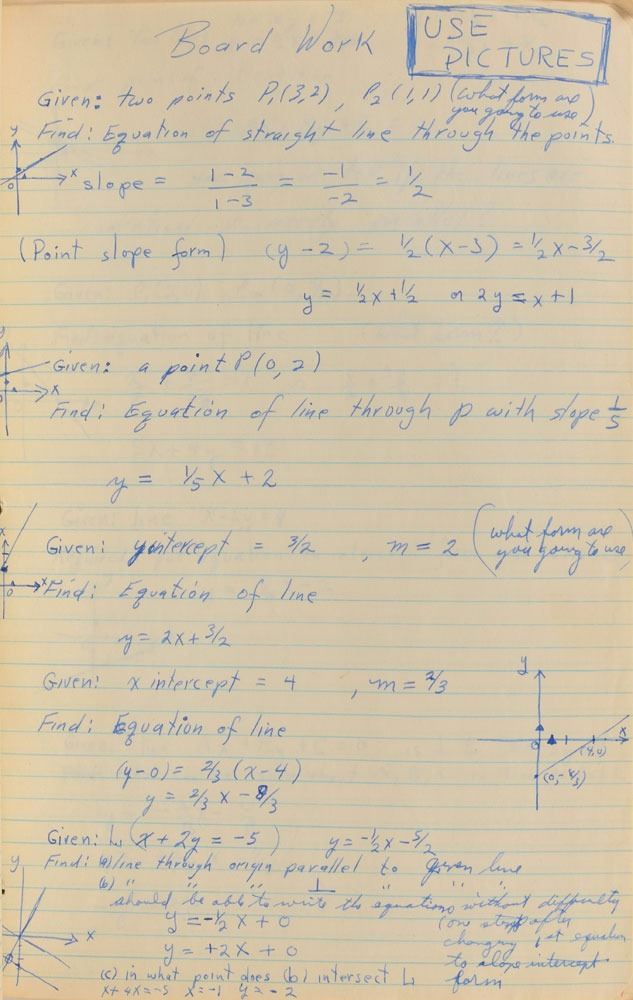 Board Work
USE
PICTURES
Given: two points P₁(3,2), P₂(1,1) (what form are
you going to use)
Find: Equation of straight line through the points.
slope = 1-2/1-3 = -1/-2 = 1/2
(Point slope form) (y-2) = 1/2(x-3) = 1/2x-3/2
y = 1/2x+1/2 or 2y = x+1
Given: a point P(0,2)
Find: Equation of line through p with slope 1/5
y = 1/5 x + 2
Given: y intercept = 3/2, m = 2 (what form are
you going to use)
Find: Equation of line
y = 2x+3/2
Given: x intercept = 4, m = 2/3
Find: Equation of line
(y-0) = 2/3 (x-4)
y = 2/3 x - 8/3
y
x
0
(4,0)
(0,-8/3)
Given: L₁ (x+2y = -5) y = -1/2x-5/2
Find: (a) line through origin parallel to given line
(b) " " " ⊥ " " "
should be able to write the equations without difficulty
y = -1/2 x + 0
(one step after
changing 1st equation
to slope intercept
form
y = +2x + 0
(c) in what point does (b) intersect L₁
x+4x=-5 x=-1 y=-2